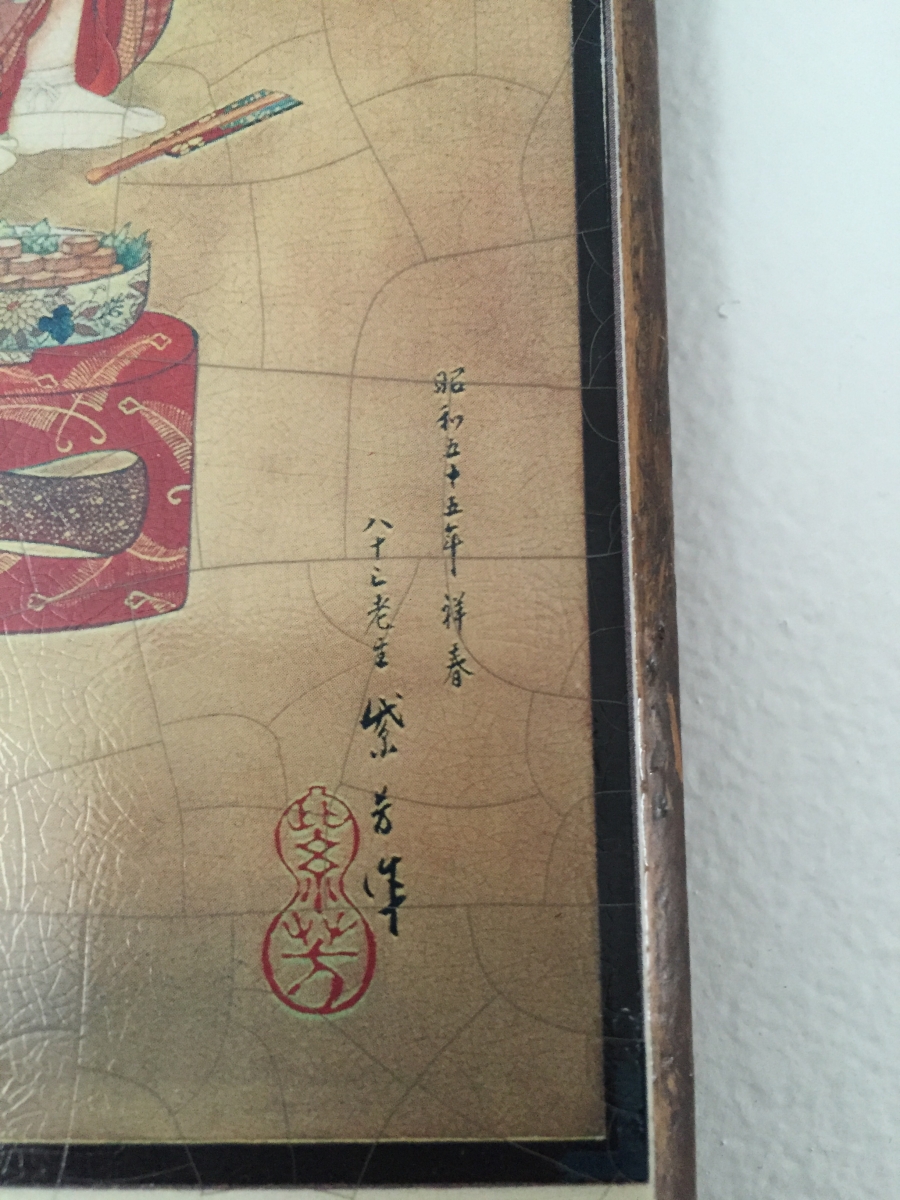 昭和五十五年祥春
八十二老生 紫芳作
紫芳